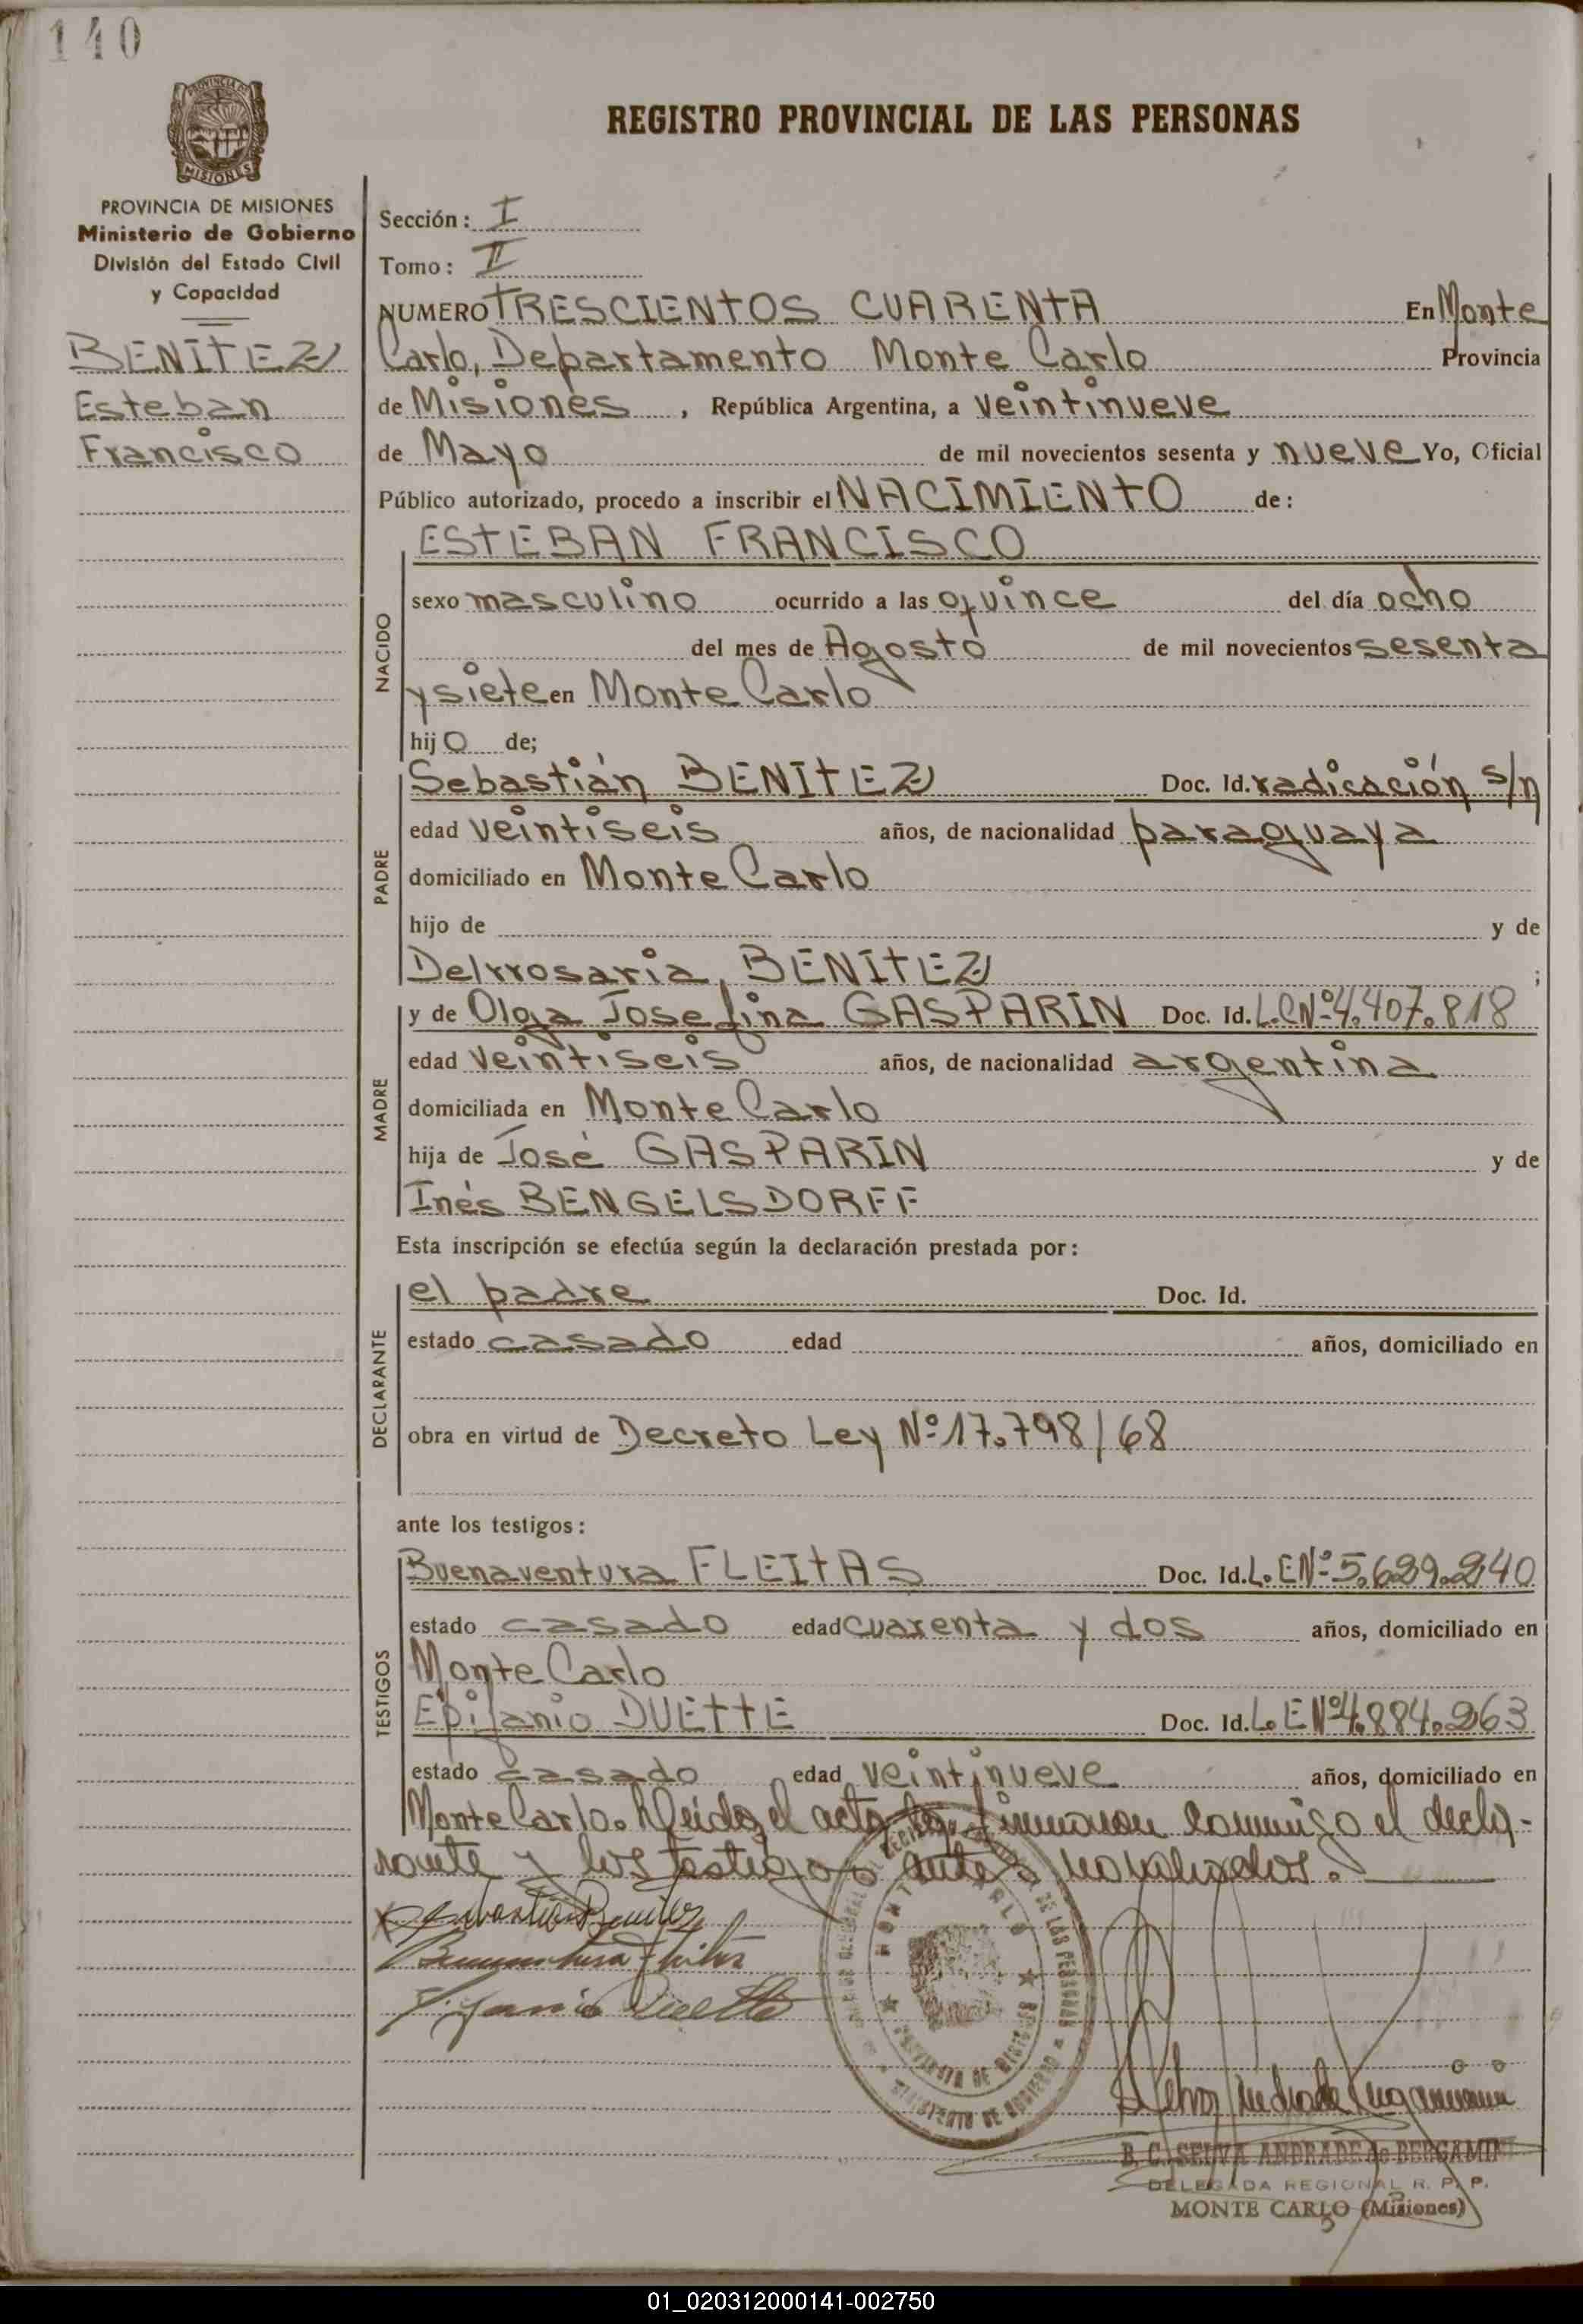 140
PROVINCIA DE
MISIONES
REGISTRO PROVINCIAL DE LAS PERSONAS
PROVINCIA DE MISIONES
Ministerio de Gobierno
División del Estado Civil
y Capacidad
BENITEZ
Esteban
Francisco
Sección: I
Tomo: II
NUMERO TRESCIENTOS CUARENTA En Monte
Carlo, Departamento Monte Carlo Provincia
de Misiones, República Argentina, a veintinueve
de Mayo de mil novecientos sesenta y nueve Yo, Oficial
Público autorizado, procedo a inscribir el NACIMIENTO de:
ESTEBAN FRANCISCO
NACIDO
sexo masculino ocurrido a las quince del día ocho
del mes de Agosto de mil novecientos sesenta
y siete en Monte Carlo
hijo de;
PADRE
Sebastián BENITEZ Doc. Id. radicación s/n
edad veintiseis años, de nacionalidad paraguaya
domiciliado en Monte Carlo
hijo de y de
Delrrosaria BENITEZ ;
MADRE
y de Olga Josefina GASPARIN Doc. Id. L.C Nº 4.407.818
edad veintiseis años, de nacionalidad argentina
domiciliada en Monte Carlo
hija de José GASPARIN y de
Inés BENGELSDORFF
Esta inscripción se efectúa según la declaración prestada por:
DECLARANTE
el padre Doc. Id.
estado casado edad años, domiciliado en
obra en virtud de Decreto Ley Nº 17.798/68
ante los testigos:
TESTIGOS
Buenaventura FLEITAS Doc. Id. L.E Nº 5.629.240
estado casado edad cuarenta y dos años, domiciliado en
Monte Carlo
Epifanio DUETTE Doc. Id. L.E Nº 4.884.263
estado casado edad veintinueve años, domiciliado en
Monte Carlo. Leida el acta la firmaron conmigo el decla-
rante y los testigos antes nombrados.
Sebastian Benitez
Buenaventura Fleitas
Epifanio Duette
MONTE CARLO
PROVINCIA DE MISIONES
MINISTERIO DE GOBIERNO
B. C. SELVA ANDRADE de BERGAMINI
DELEGADA REGIONAL R. P. P.
MONTE CARLO (Misiones)
01_020312000141-002750